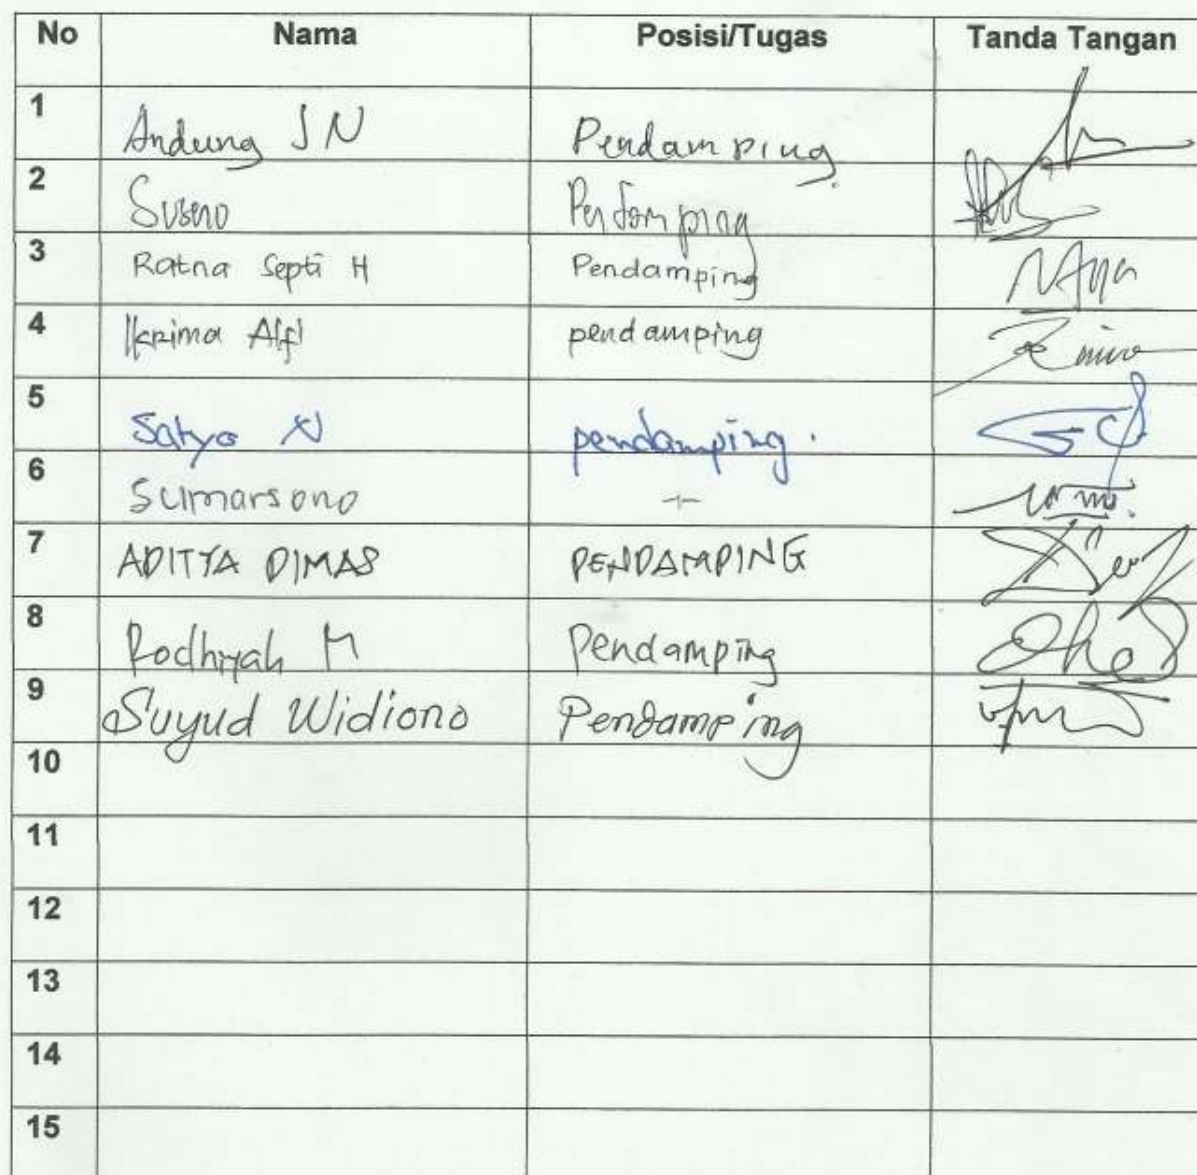 No Nama Posisi/Tugas Tanda Tangan
1 Andung J N Pendamping
2 Suseno Pendamping
3 Ratna Septi H Pendamping
4 Ikrima Alfi pendamping
5 Satyo N pendamping.
6 Sumarsono
7 ADITYA DIMAS PENDAMPING
8 Rodhiyah M Pendamping
9 Suyud Widiono Pendamping
10
11
12
13
14
15